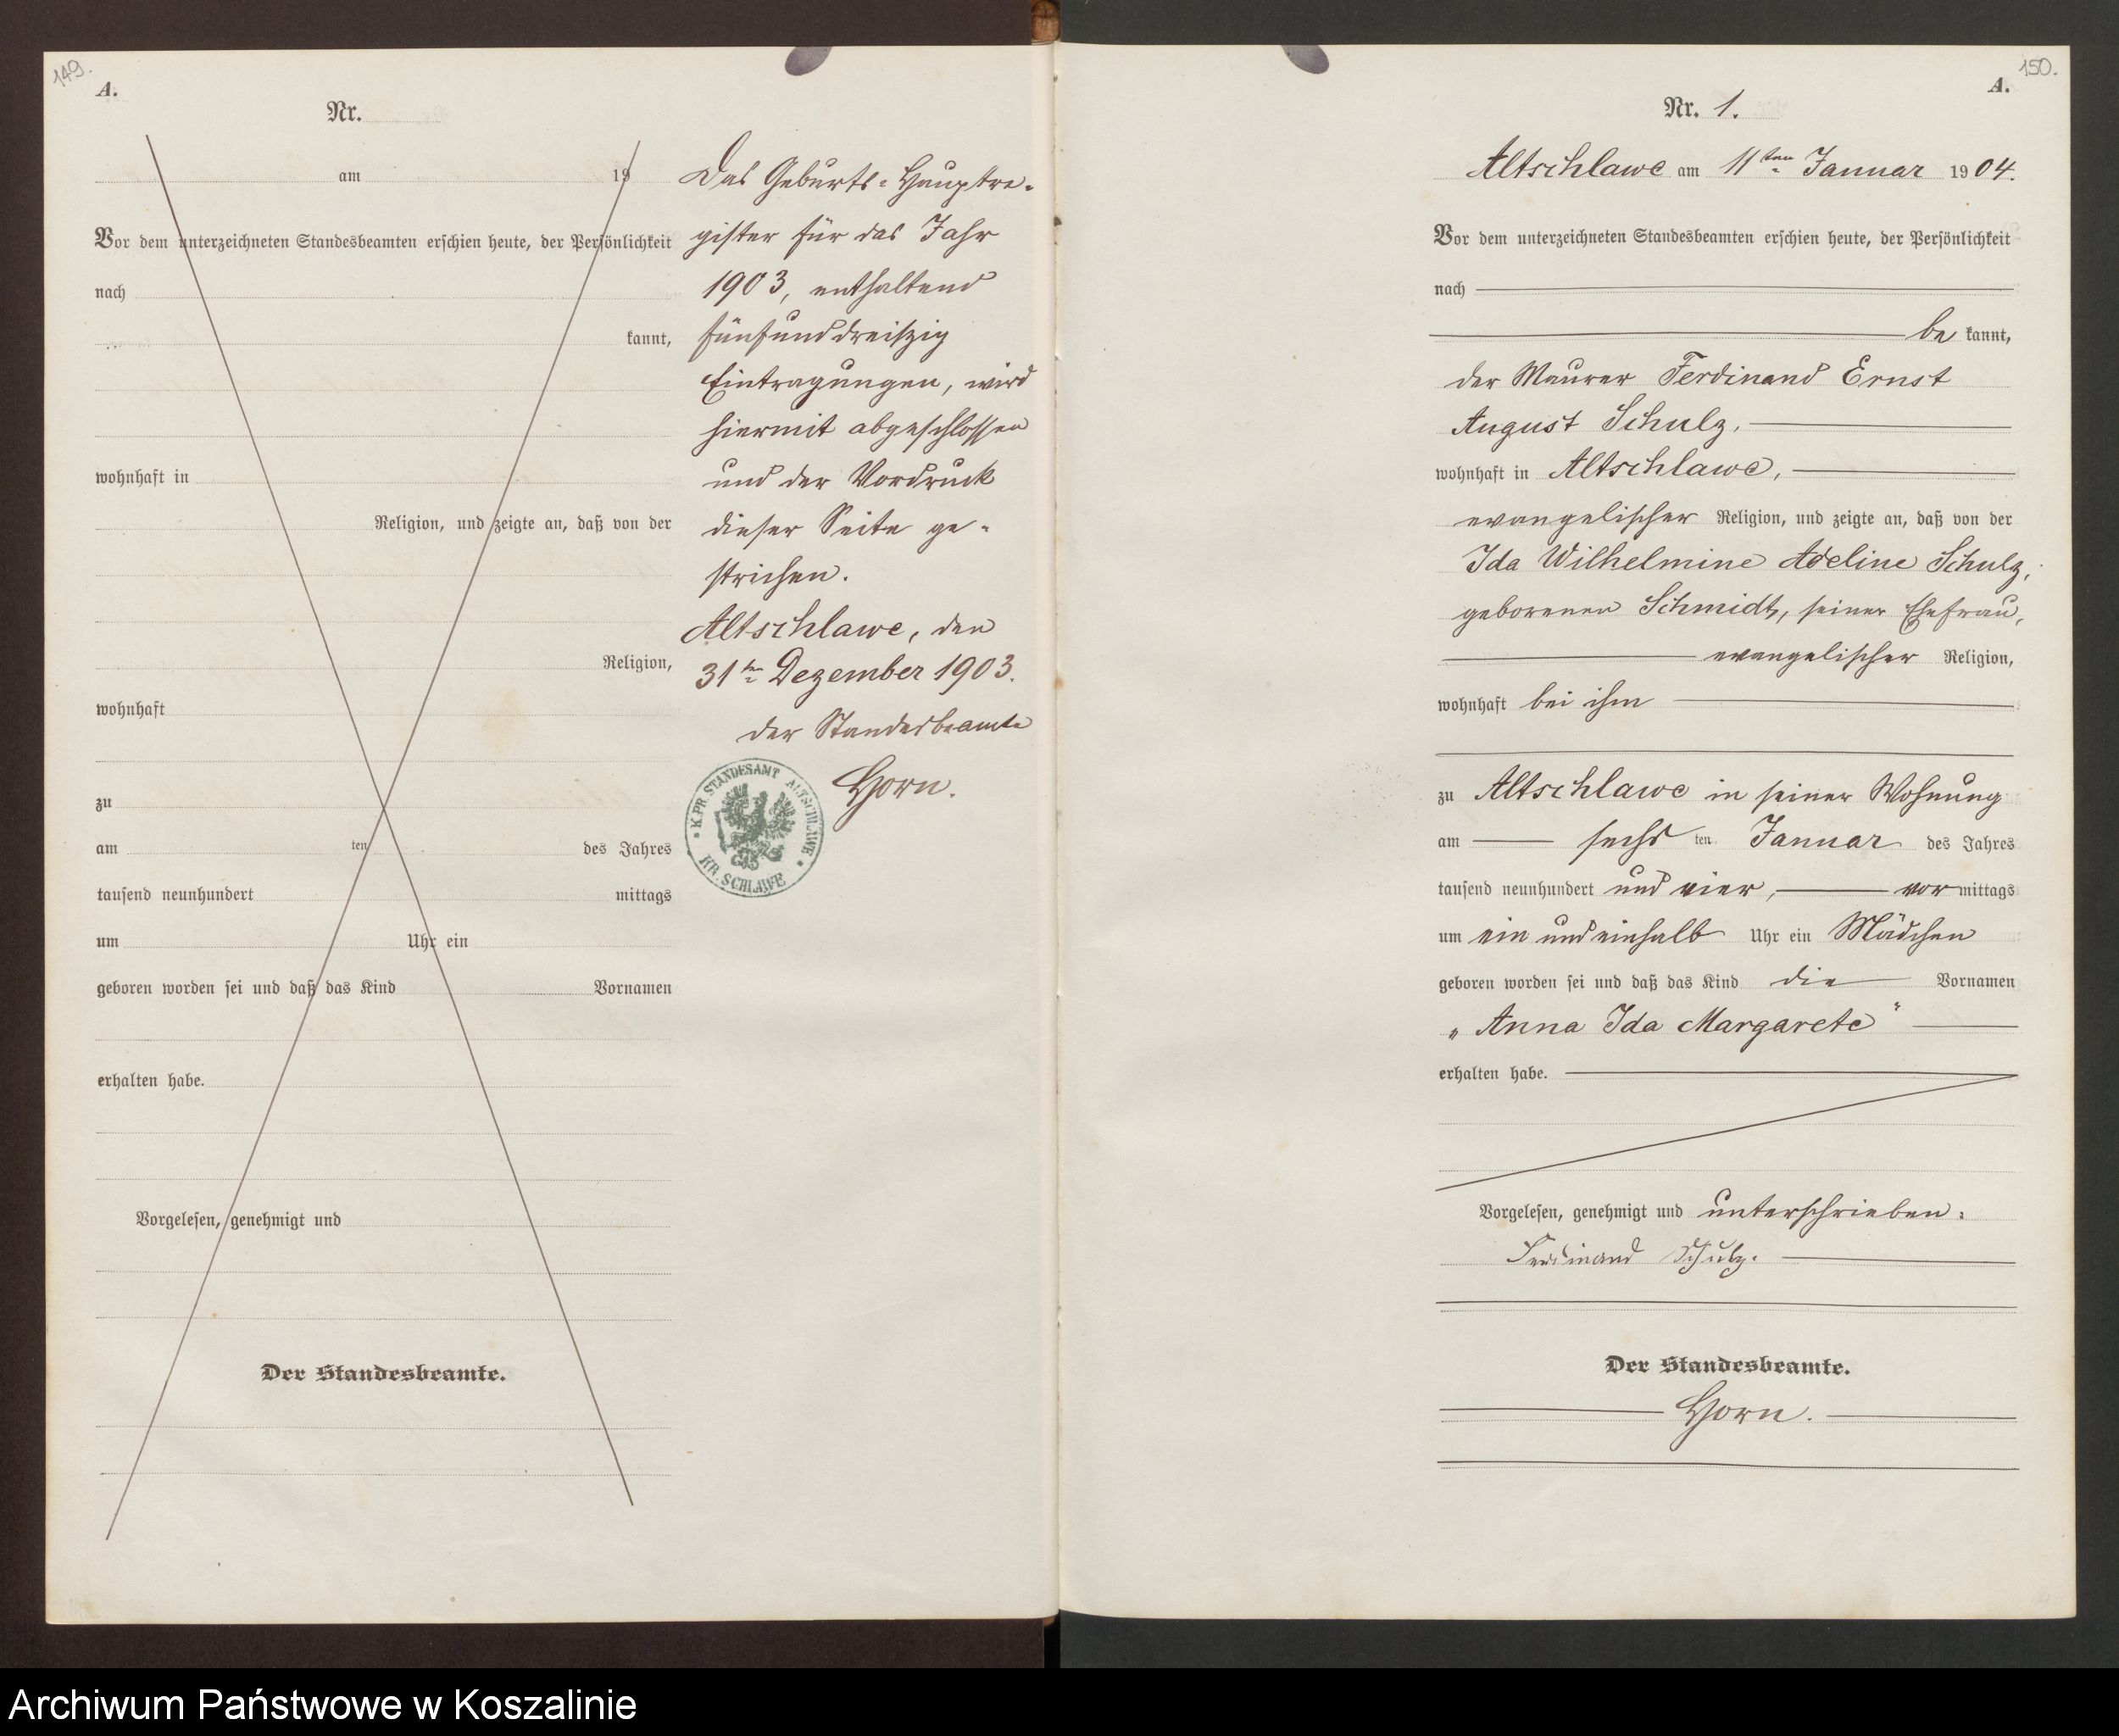 149.
A.
Nr.
am 19
Vor dem unterzeichneten Standesbeamten erschien heute, der Persönlichkeit
nach
kannt,
wohnhaft in
Religion, und zeigte an, daß von der
Religion,
wohnhaft
zu
am ten des Jahres
tausend neunhundert mittags
um Uhr ein
geboren worden sei und daß das Kind Vornamen
erhalten habe.
Vorgelesen, genehmigt und
Der Standesbeamte.
Das Geburts-Hauptre-
gister für das Jahr
1903, enthaltend
fünfunddreiszig
Eintragungen, wird
hiermit abgeschlossen
und der Vordruck
dieser Seite ge-
strichen.
Altschlawe, den
31ten Dezember 1903.
Der Standesbeamte
Horn.
K. PR. STANDESAMT ALTSCHLAWE
KR. SCHLAWE
150.
A.
Nr. 1.
Altschlawe am 11ten Januar 1904.
Vor dem unterzeichneten Standesbeamten erschien heute, der Persönlichkeit
nach
be kannt,
der Maurer Ferdinand Ernst
August Schulz,
wohnhaft in Altschlawe,
evangelischer Religion, und zeigte an, daß von der
Ida Wilhelmine Adeline Schulz,
geborenen Schmidt, seiner Ehefrau,
evangelischer Religion,
wohnhaft bei ihm
zu Altschlawe in seiner Wohnung
am sechs ten Januar des Jahres
tausend neunhundert und vier, vor mittags
um ein und einhalb Uhr ein Mädchen
geboren worden sei und daß das Kind die Vornamen
„Anna Ida Margarete“
erhalten habe.
Vorgelesen, genehmigt und unterschrieben:
Ferdinand Schulz.
Der Standesbeamte.
Horn.
Archiwum Państwowe w Koszalinie